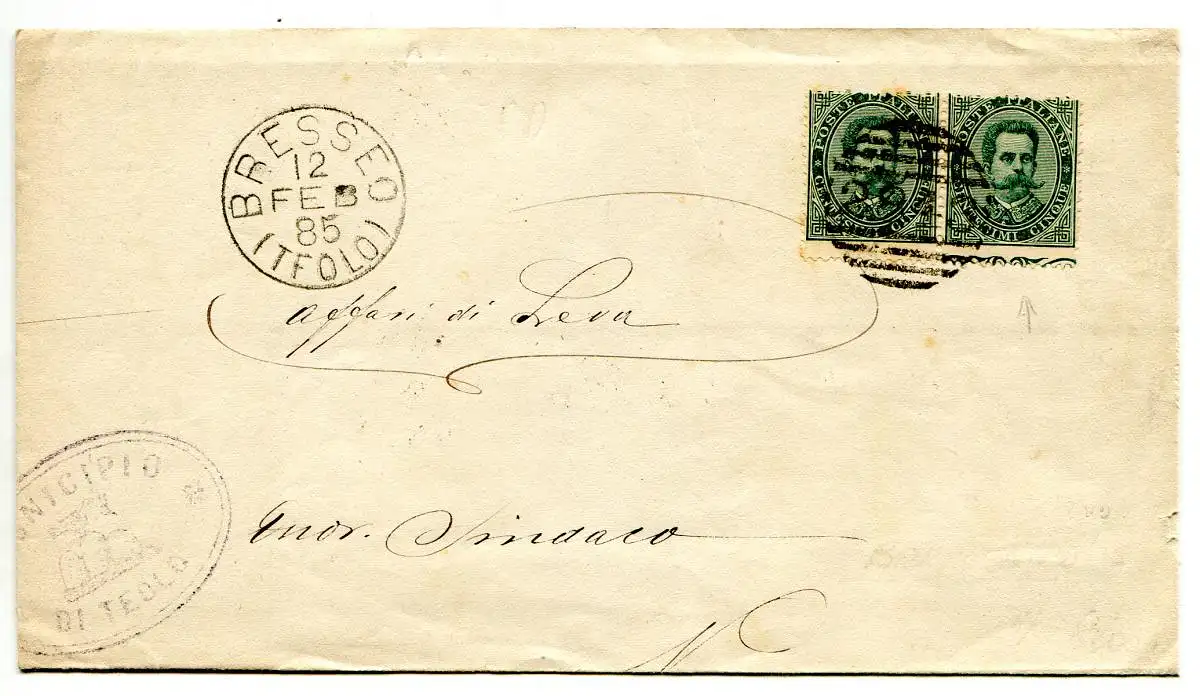 BRESSEO
12
FEB
85
(TEOLO)
POSTE ITALIANE
CENTESIMI CINQUE
POSTE ITALIANE
CENTESIMI CINQUE
affari di Leva
MUNICIPIO
DI TEOLO
Onor. Sindaco